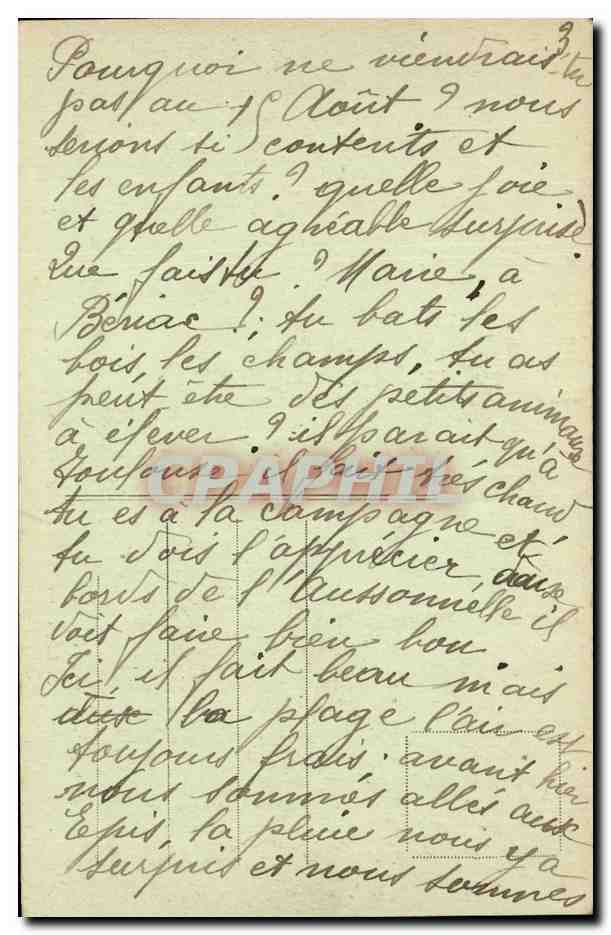 3
Pourquoi ne viendrais-tu
pas au 15 Août ? nous
serions si contents et
les enfants ? quelle joie
et quelle agréable surprise
Que fais tu ? Marie, à
Bériac ? tu bats les
bois, les champs, tu as
peut être des petits animaux
à élever ? il parait qu'à
Toulouse il fait très chaud
tu es à la campagne et
tu dois l'apprécier, aux
bords de l'Aussonnelle il
doit faire bien bon
Ici, il fait beau mais
sur la plage l'air est
toujours frais. avant hier
nous sommes allés aux
Epis, la pluie nous y a
surpris et nous sommes
CPAPHIL